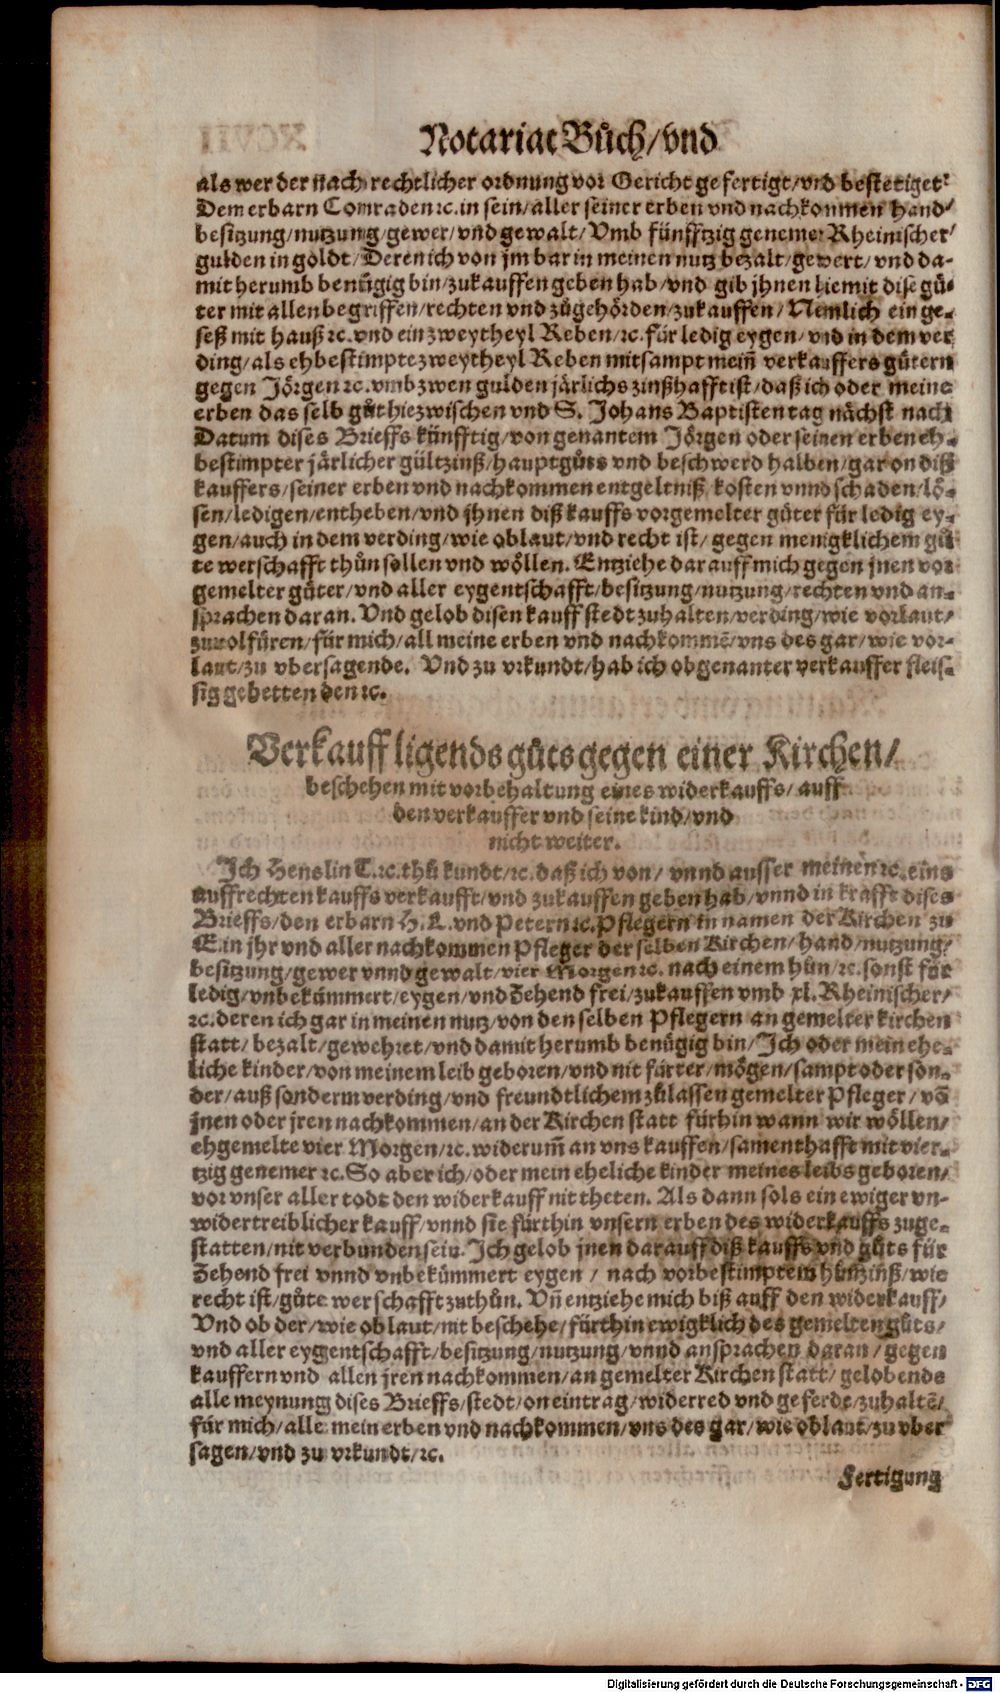 Notariat Bůch/vnd
als wer der nach rechtlicher ordnung vor Gericht gefertigt/vnd bestetiget/
Dem erbarn Conraden ꝛc. in sein/aller seiner erben vnd nachkommen hand/
besitzung/nutzung/gewer/vnd gewalt/Vmb fünfftzig genemer Rheinischer/
gulden in goldt/Deren ich von jm bar in meinen nutz bezalt/gewert/vnd da-
mit herumb benügig bin/zukauffen geben hab/vnd gib jhnen hiemit dise gü-
ter mit allen begriffen/rechten vnd zůgehörden/zukauffen/Nemlich ein ge-
seß mit hauß ꝛc. vnd ein zweytheyl Reben/ꝛc. für ledig eygen/vnd in dem ver
ding/als ehbestimpte zweytheyl Reben mitsampt mein̄ verkauffers gütern
gegen Jörgen ꝛc. vmb zwen gulden järlichs zinßhafft ist/daß ich oder meine
erben das selb gůt hiezwischen vnd S. Johans Baptisten tag nächst nach
Datum dises Brieffs künfftig/von genantem Jörgen oder seinen erben eh-
bestimpter järlicher gültzinß/hauptgůts vnd beschwerd halben/gar on diß
kauffers/seiner erben vnd nachkommen entgeltniß/kosten vnnd schaden/lö-
sen/ledigen/entheben/vnd jhnen diß kauffs vorgemelter güter für ledig ey-
gen/auch in dem verding/wie oblaut/vnd recht ist/gegen menigklichem gů
te werschafft thůn sollen vnd wöllen. Entziehe darauff mich gegen jnen vor
gemelter güter/vnd aller eygentschafft/besitzung/nutzung/rechten vnd an-
sprachen daran. Vnd gelob disen kauff stedt zuhalten/verding/wie vorlaut/
zuuolfüren/für mich/all meine erben vnd nachkommē/vns des gar/wie vor-
laut/zu vbersagende. Vnd zu vrkundt/hab ich obgenanter verkauffer fleis-
sig gebetten den ꝛc.
Verkauff ligends gůts gegen einer Kirchen/
beschehen mit vorbehaltung eines widerkauffs/auff
den verkauffer vnd seine kind/vnd
nicht weiter.
Ich Henslin T. ꝛc. thů kundt/ꝛc. daß ich von/vnnd ausser meinen ꝛc. eins
auffrechten kauffs verkaufft/vnd zukauffen geben hab/vnnd in krafft dises
Brieffs/den erbarn H. L. vnd Petern ꝛc. Pflegern in namen der Kirchen zu
E. in jhr vnd aller nachkommen Pfleger der selben Kirchen/hand/nutzung/
besitzung/gewer vnnd gewalt/vier Morgen ꝛc. nach einem hůn/ꝛc. sonst für
ledig/vnbekümmert/eygen/vnd Zehend frei/zukauffen vmb xl. Rheinischer/
ꝛc. deren ich gar in meinen nutz/von den selben Pflegern an gemelter kirchen
statt/bezalt/gewehret/vnd damit herumb benügig bin/Ich oder mein ehe-
liche kinder/von meinem leib geboren/vnd nit fürter/mögen/sampt oder son-
der/auß sonderm verding/vnd freundtlichem zůlassen gemelter Pfleger/vō
jnen oder jren nachkommen/an der Kirchen statt fürhin wann wir wöllen/
ehgemelte vier Morgen/ꝛc. widerum̄ an vns kauffen/samenthafft mit vier-
tzig genemer ꝛc. So aber ich/oder mein eheliche kinder meines leibs geboren/
vor vnser aller todt den widerkauff nit theten. Als dann sols ein ewiger vn-
widertreiblicher kauff/vnnd sie fürthin vnsern erben des widerkauffs zuge-
statten/nit verbunden sein. Ich gelob jnen darauff diß kauffs vnd gůts für
Zehend frei vnnd vnbekümmert eygen/nach vorbestimptem hůnzinß/wie
recht ist/gůte werschafft zuthůn. Vn̄ entziehe mich biß auff den widerkauff/
Vnd ob der/wie oblaut/nit beschehe/fürthin ewigklich des gemelten gůts/
vnd aller eygentschafft/besitzung/nutzung/vnnd ansprachen daran/gegen
kauffern vnd allen jren nachkommen/an gemelter Kirchen statt/gelobende
alle meynung dises Brieffs/stedt/on eintrag/widerred vnd geferde/zuhaltē/
für mich/alle mein erben vnd nachkommen/vns des gar/wie oblaut/zu vber
sagen/vnd zu vrkundt/ꝛc.
Fertigung
Digitalisierung gefördert durch die Deutsche Forschungsgemeinschaft - DFG